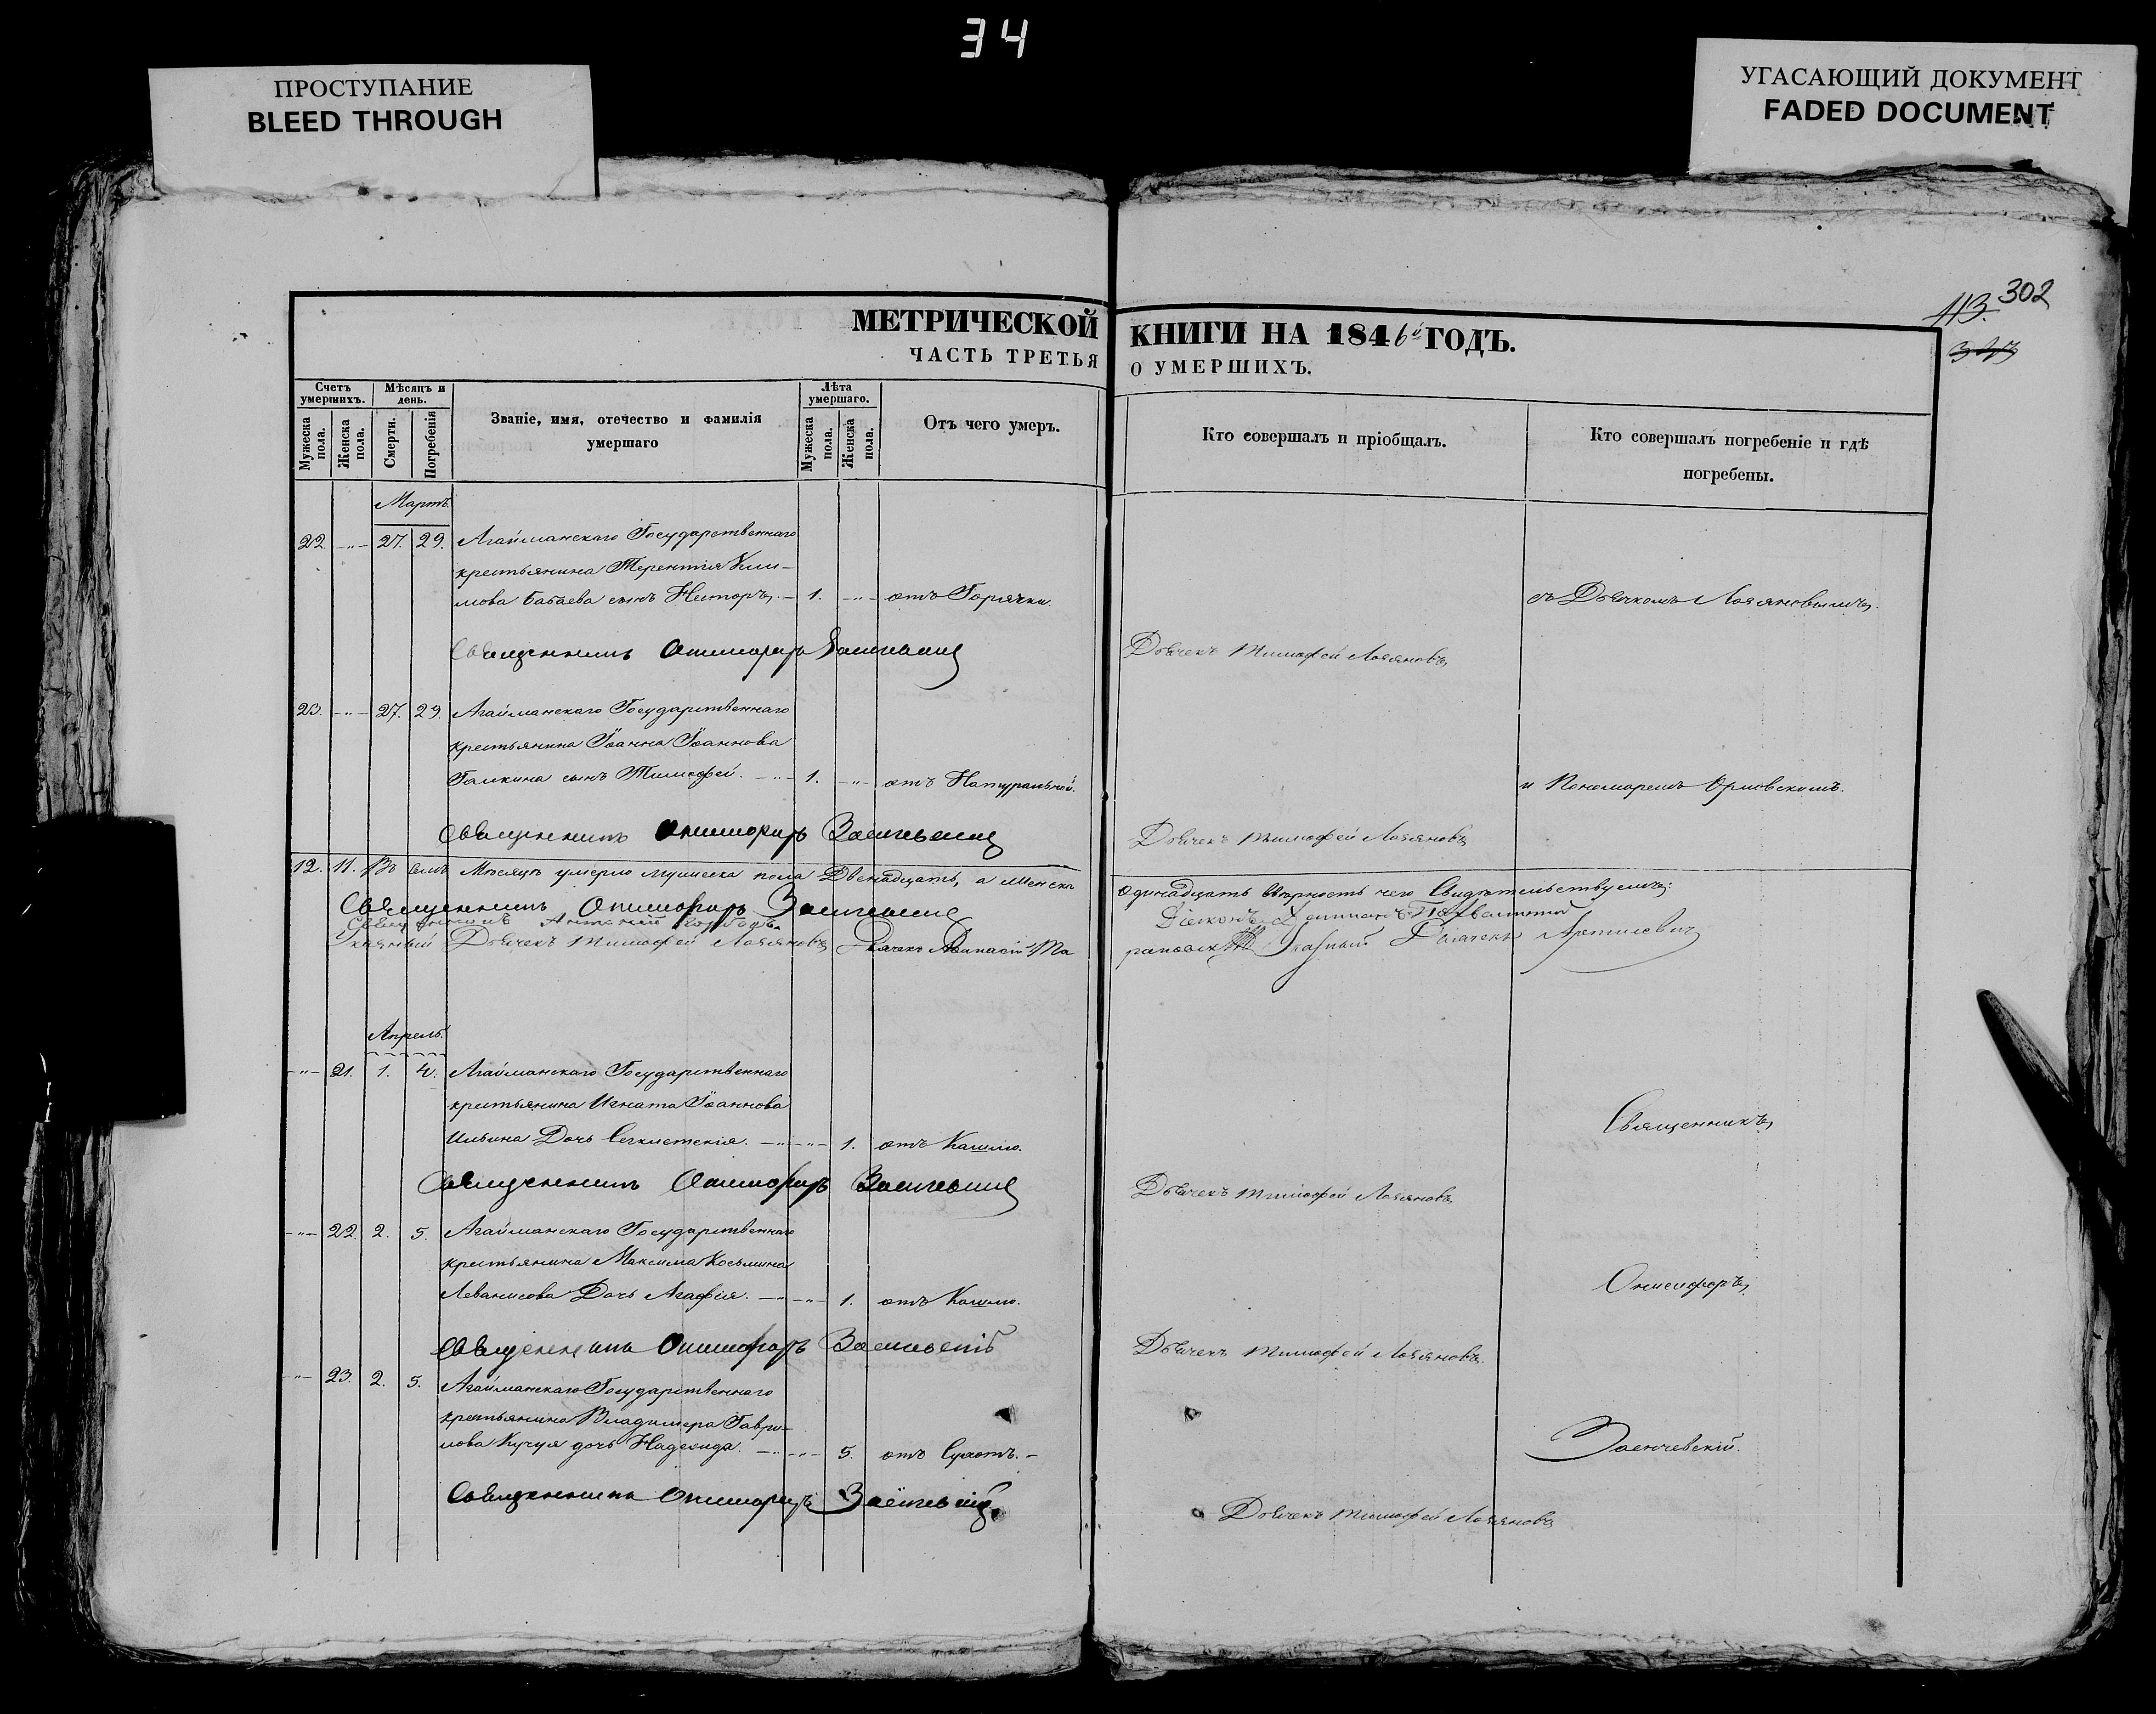 34
ПРОСТУПАНИЕ
BLEED THROUGH
УГАСАЮЩИЙ ДОКУМЕНТ
FADED DOCUMENT
302
113.
МЕТРИЧЕСКОЙ КНИГИ НА 1846й ГОДЪ.
ЧАСТЬ ТРЕТЬЯ О УМЕРШИХЪ.
Счетъ умершихъ.
Мѣсяцъ и день.
Званіе, имя, отечество и фамилія умершаго
Лѣта умершаго.
Отъ чего умеръ.
Кто совершалъ и пріобщалъ.
Кто совершалъ погребеніе и гдѣ погребены.
Мужеска пола.
Женска пола.
Смерти.
Погребенія
Мужеска пола.
Женска пола.
Мартъ.
22. -"- 27. 29. Агайманскаго Государственнаго
крестьянина Терентія Кли-
мова Бабаева сынъ Несторъ. - 1. -"- отъ Горячки. съ Дьячкомъ
Священникъ Онисифоръ Дьячекъ Тимофей
23. -"- 27. 29. Агайманскаго Государственнаго
крестьянина Іоанна Іоаннова
Галкина сынъ Тимофей. -"- 1. -"- отъ Натуральной. и Пономаремъ Орловскимъ.
Священникъ Онисифоръ Заенчевскій Дьячекъ Тимофей
12. 11. Въ семъ Мѣсяцѣ умерло мужеска пола Двенадцать, а женска одинадцать въ вѣрность чего Свидѣтельствуемъ:
Священникъ Онисифоръ Заенчевскій
Священникъ Антоній Діаконъ
Указный Дьячекъ Тимофей Дьячекъ Афанасій Указный Дьячекъ
Апрель.
-"- 21. 1. 4. Агайманскаго Государственнаго
крестьянина Игната Іоаннова
Ильина Дочь -"- -"- 1. отъ Кашлю. Священникъ
Священникъ Онисифоръ Заенчевскій Дьячекъ Тимофей
-"- 22. 2. 5. Агайманскаго Государственнаго
крестьянина Максима Косьмина
Дочь Агафія. -"- -"- 1. отъ Кашлю. Онисифоръ
Священникъ Онисифоръ Заенчевскій Дьячекъ Тимофей
-"- 23. 2. 5. Агайманскаго Государственнаго
крестьянина Владимера Гаври-
лова дочь Надежда. -"- -"- 5. отъ Сухотъ. - Заенчевскій.
Священникъ Онисифоръ Заенчевскій Дьячекъ Тимофей